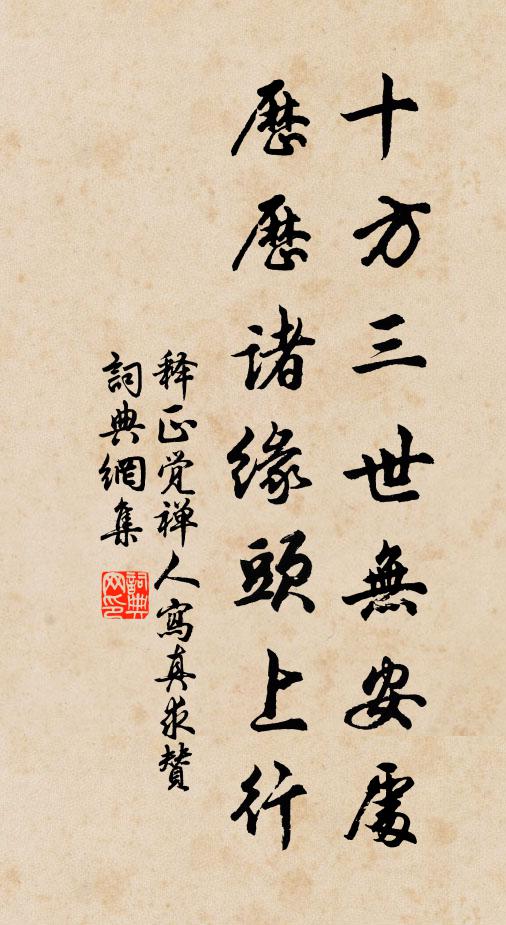 十方三世無安處
歷歷諸緣頭上行
释正觉禅人寫真求贊
詞典網集
詞典网印